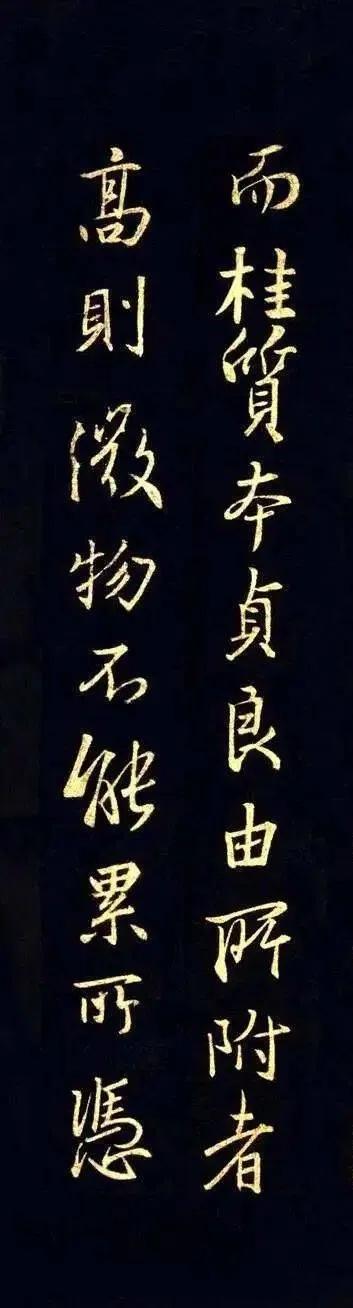 而桂質本貞良由所附者
高則微物不能累所憑